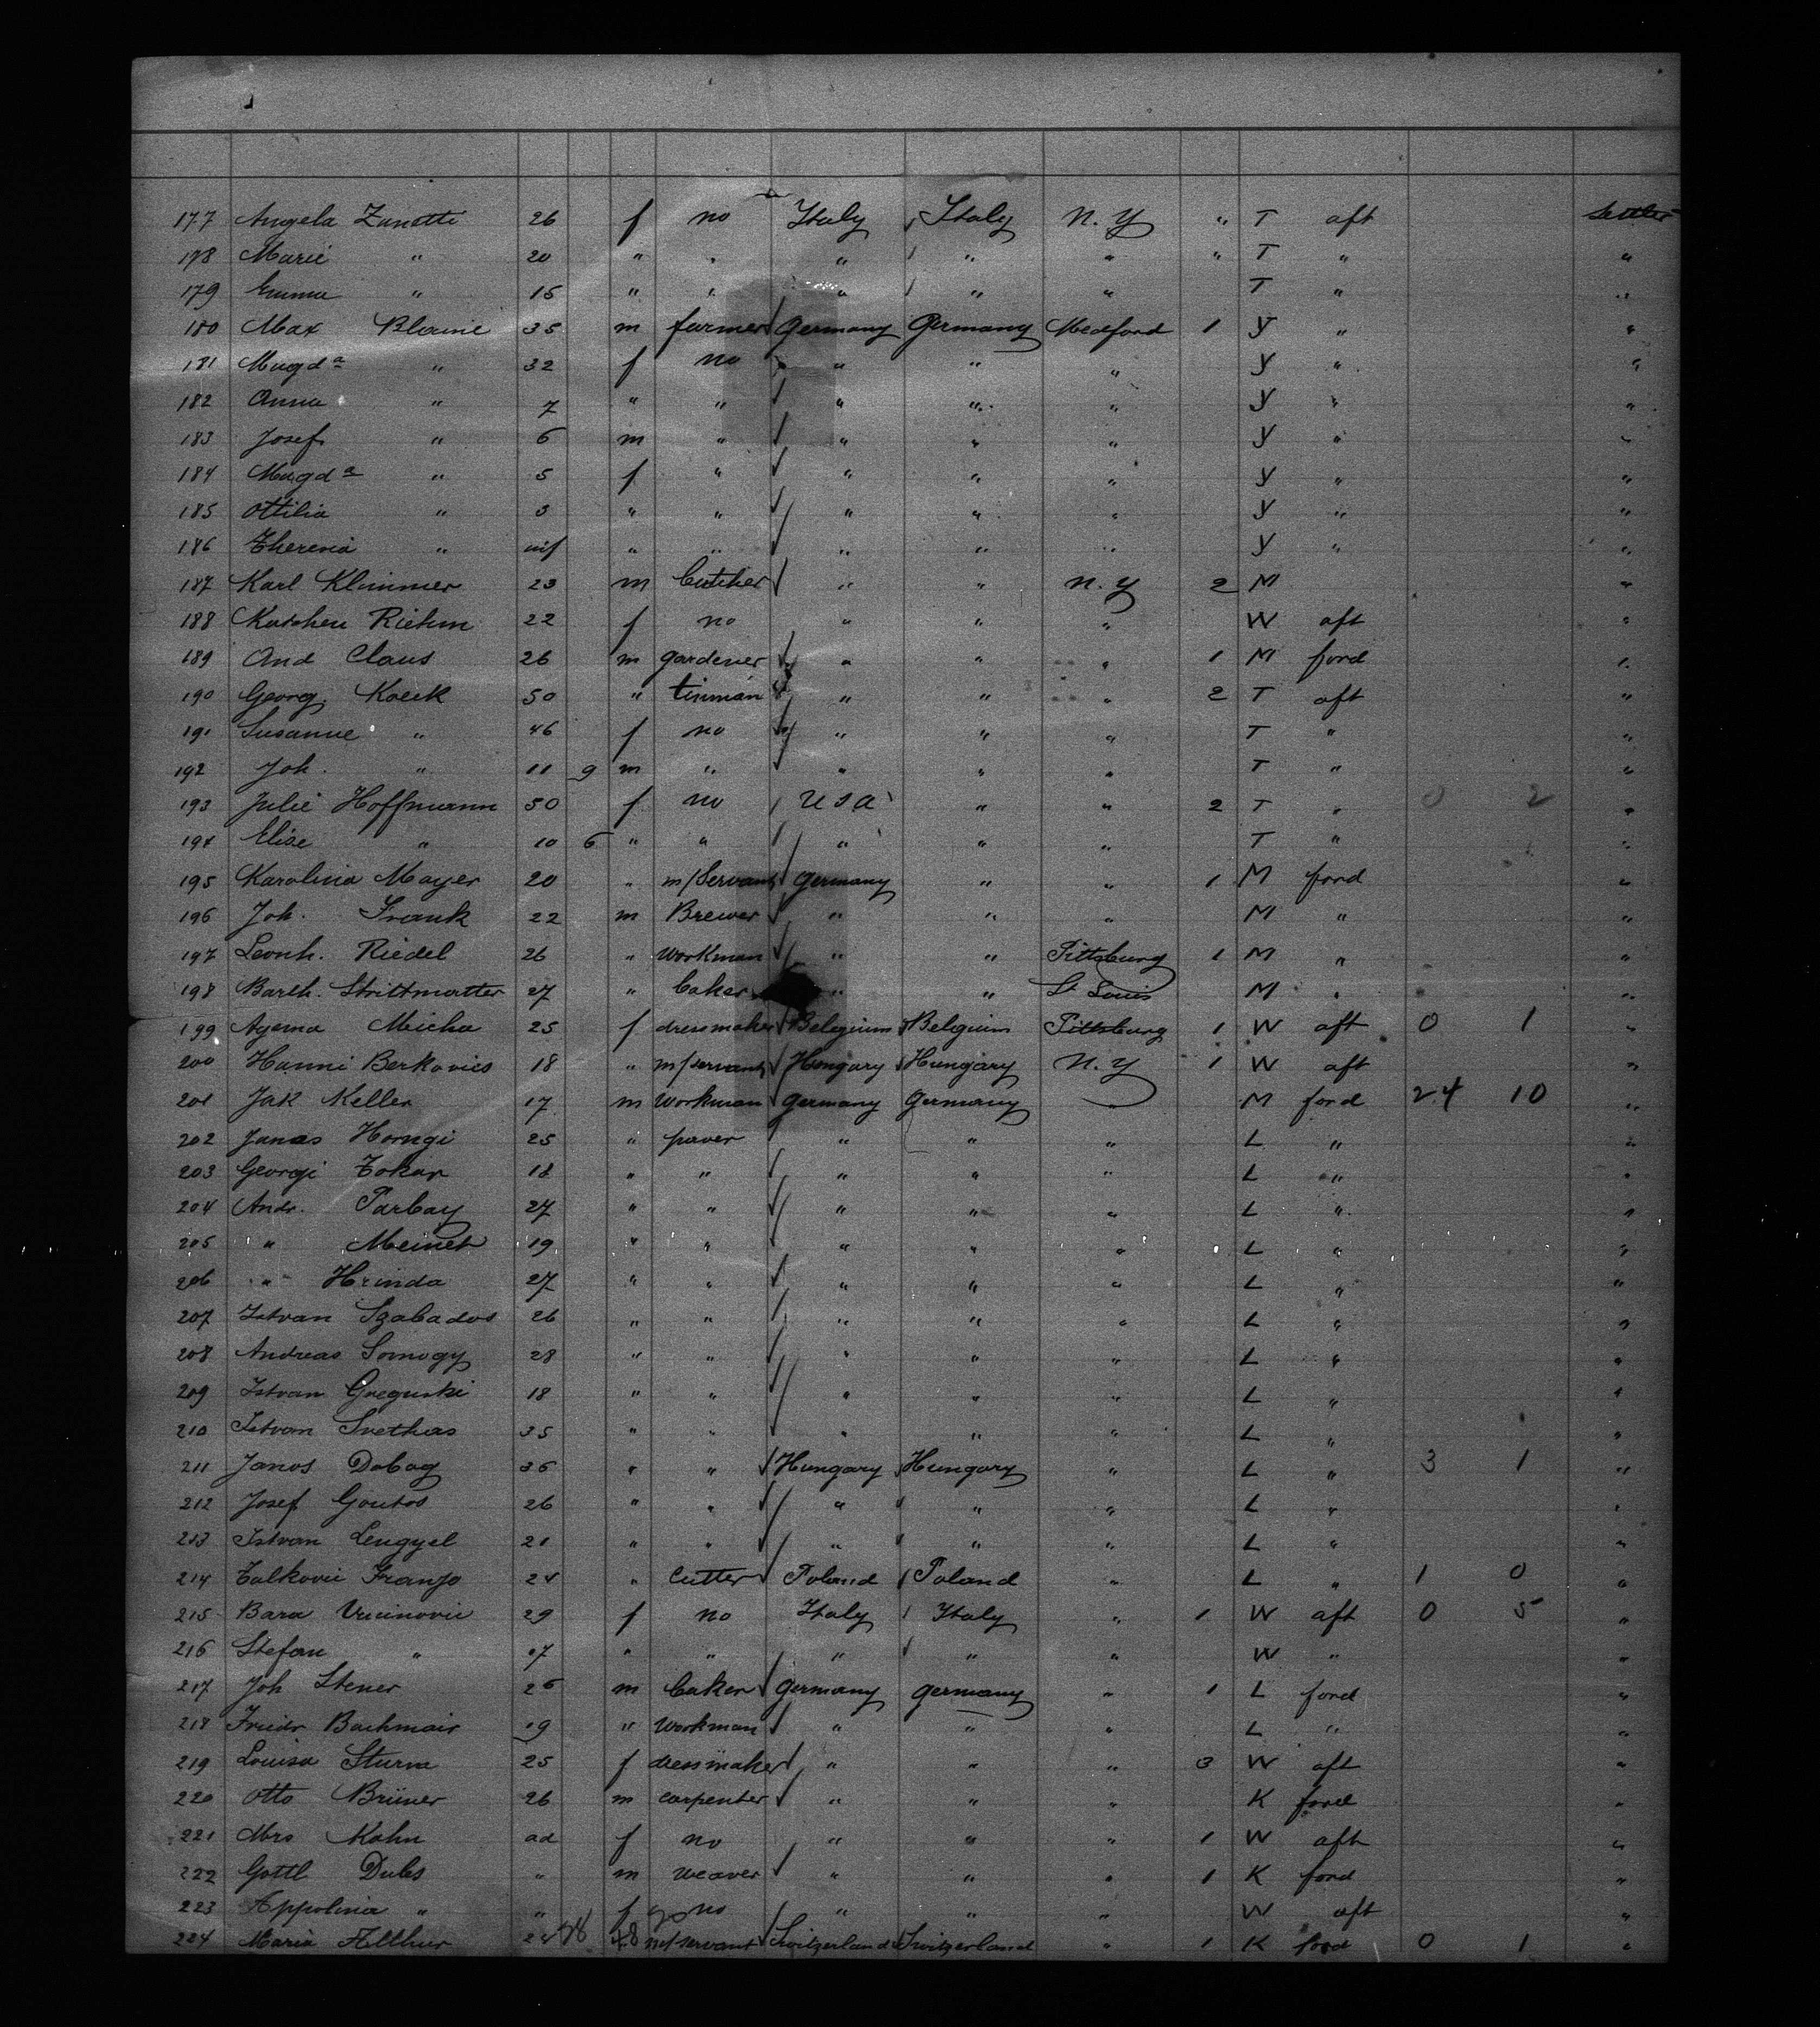 177 Angela Zanetti 26 f no Italy Italy N.Y " T aft settler
178 Marie " 20 " " " " " " T " "
179 Emma " 15 " " " " " T " "
180 Max Blaine 35 m farmer Germany Germany Medford 1 Y " "
181 Magda " 32 f no " " " Y " "
182 Anna " 7 " " " " " Y " "
183 Josef " 6 m " " " " Y " "
184 Magda " 5 f " " " " Y " "
185 Ottilia " 3 " " " " " Y " "
186 Theresia " inf " " " " " Y " "
187 Karl Klimmer 23 m butcher " " N.Y 2 M "
188 Katchen Riehm 22 f no " " " W aft "
189 And Claus 26 m gardener " " " 1 M ford "
190 Georg. Koeck 50 " tinman " " " 2 T aft "
191 Susanne " 46 f no " " " T " "
192 Joh. " 11 9 m " " " " T " "
193 Julie Hoffmann 50 f no USA " " 2 T " 0 2 "
194 Elise " 10 6 " " " " " T " "
195 Karolina Mayer 20 " m/servant Germany " " 1 M ford "
196 Joh. Frank 22 m Brewer " " " M " "
197 Leonh. Riedel 26 " workman " " Pittsburg 1 M " "
198 Barth. Strittmatter 27 " baker " " St Louis M " "
199 Ayema Micha 25 f dressmaker Belegium Belegium Pittsburg 1 W aft 0 1 "
200 Hanni Berkovics 18 " m/servant Hungary Hungary N.Y 1 W aft "
201 Jak Keller 17 m workman Germany Germany " M ford 24 10 "
202 Janas Horngi 25 " paver " " " L " "
203 Georgi Tokar 18 " " " " " L " "
204 Andr. Parbay 27 " " " " " L " "
205 " Meinet 19 " " " " " L " "
206 " Hrinda 27 " " " " " L " "
207 Istvan Szabados 26 " " " " " L " "
208 Andreas Somogy 28 " " " " " L " "
209 Istvan Greguski 18 " " " " " L " "
210 Istvan Svethas 35 " " " " " L " "
211 Janos Dobog 36 " " Hungary Hungary " L " 3 1 "
212 Josef Goutos 26 " " " " " L " "
213 Istvan Lengyel 21 " " " " " L " "
214 Tolkovic Franjo 24 " cutter Poland Poland " L " 1 0 "
215 Bara Vucinovic 29 f no Italy Italy " 1 W aft 0 5 "
216 Stefan " 07 " " " " " W " "
217 Joh Stener 26 m baker Germany Germany " 1 L ford "
218 Friedr Bachmair 19 " workman " " " L " "
219 Louisa Sturm 25 f dressmaker " " " 3 W aft "
220 Otto Brüner 26 m carpenter " " " K ford "
221 Mrs Kohn ad f no " " " 1 W aft "
222 Gottl Dubs " m weaver " " " 1 K ford "
223 Appolinia " " f no " " " W aft "
224 Maria Altthur 24 48 m/servant Switzerland Switzerland " 1 K ford 0 1 "